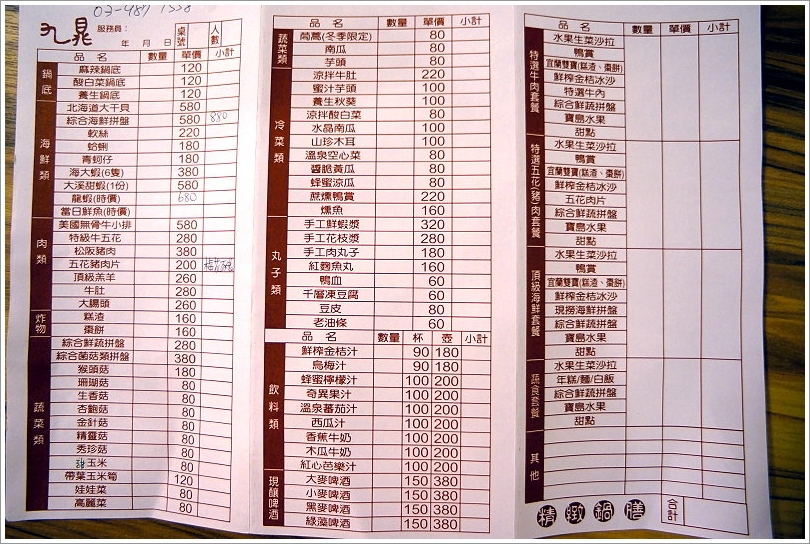 03-987 1558
九晁
服務員：
桌號
人數
年 月 日
品 名 數量 單價 小計
鍋底
麻辣鍋底 120
酸白菜鍋底 120
養生鍋底 120
海鮮類
北海道大干貝 580
綜合海鮮拼盤 580 880
軟絲 220
蛤蜊 180
青蚵仔 180
海大蝦(6隻) 380
大溪甜蝦(1份) 580
龍蝦(時價) 680
當日鮮魚(時價)
肉類
美國無骨牛小排 580
特級牛五花 280
松阪豬肉 380
五花豬肉片 200
頂級羔羊 260
牛肚 280
大腸頭 260
炸物
糕渣 160
棗餅 160
蔬菜類
綜合鮮蔬拼盤 280
綜合菌菇類拼盤 380
猴頭菇 180
珊瑚菇 80
生香菇 80
杏鮑菇 80
金針菇 80
精靈菇 80
秀珍菇 80
甜玉米 80
帶葉玉米筍 120
娃娃菜 80
高麗菜 80
品 名 數量 單價 小計
蔬菜類
茼蒿(冬季限定) 80
南瓜 80
芋頭 80
冷菜類
涼拌牛肚 220
蜜汁芋頭 100
養生秋葵 100
涼拌酸白菜 80
水晶南瓜 100
山珍木耳 100
溫泉空心菜 80
醬脆黃瓜 80
蜂蜜涼瓜 80
蔗燻鴨賞 220
燻魚 160
丸子類
手工鮮蝦漿 320
手工花枝漿 280
手工肉丸子 180
紅麴魚丸 160
鴨血 60
千層凍豆腐 60
豆皮 80
老油條 60
品 名 數量 杯 壺 小計
飲料類
鮮榨金桔汁 90 180
烏梅汁 90 180
蜂蜜檸檬汁 100 200
奇異果汁 100 200
溫泉蕃茄汁 100 200
西瓜汁 100 200
香蕉牛奶 100 200
木瓜牛奶 100 200
紅心芭樂汁 100 200
現釀啤酒
大麥啤酒 150 380
小麥啤酒 150 380
黑麥啤酒 150 380
綠藻啤酒 150 380
品 名 數量 單價 小計
特選牛肉套餐
水果生菜沙拉
鴨賞
宜蘭雙寶(糕渣、棗餅)
鮮榨金桔冰沙
特選牛肉
綜合鮮蔬拼盤
寶島水果
甜點
特選五花(豬)肉套餐
水果生菜沙拉
鴨賞
宜蘭雙寶(糕渣、棗餅)
鮮榨金桔冰沙
五花肉片
綜合鮮蔬拼盤
寶島水果
甜點
頂級海鮮套餐
水果生菜沙拉
鴨賞
宜蘭雙寶(糕渣、棗餅)
鮮榨金桔冰沙
現撈海鮮拼盤
綜合鮮蔬拼盤
寶島水果
甜點
蔬食套餐
水果生菜沙拉
年糕/麵/白飯
綜合鮮蔬拼盤
寶島水果
甜點
其他
精緻鍋膳
合計